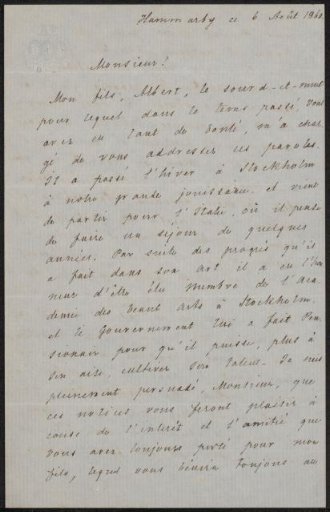 Hammarby ce 6 Août 1860
Monsieur!
Mon fils, Albert, le sourd-et-muet
pour lequel dans le tems passé vous
avez eu tant de bonté, m'a char
gé de vous addresser ces paroles.
Il a passé l'hiver à Stockholm
à notre grande jouissance et vient
de partir pour l'Italie, où il pense
de faire un séjour de quelques
années. Par suite des progrès qu'il
a fait dans son art il a eu l'hon
neur d'être élu membre de l'Aca
demie des beaux arts à Stockholm.
et le Gouvernement lui a fait Pen
sionnaire pour qu'il puisse, plus à
son aise, cultiver son talent. Je suis
pleinement persuadé, Monsieur, que
ces notices vous feront plaisir à
cause de l'intérêt et l'amitié que
vous avez toujours porté pour mon
fils, lequel vous toujours au